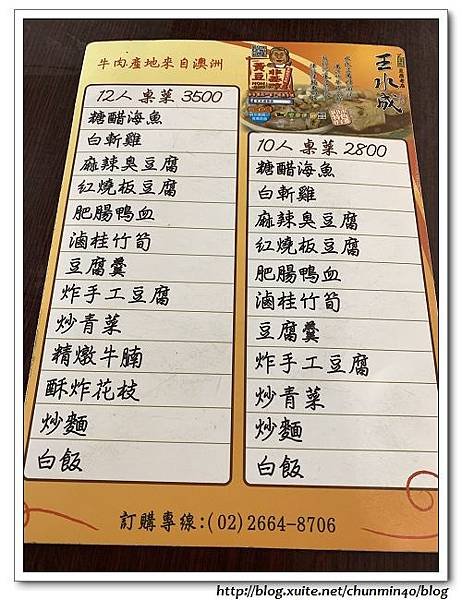 牛肉產地來自澳洲
王水成
12人 桌菜 3500
糖醋海魚
白斬雞
麻辣臭豆腐
紅燒板豆腐
肥腸鴨血
滷桂竹筍
豆腐羹
炸手工豆腐
炒青菜
精燉牛腩
酥炸花枝
炒麵
白飯
10人 桌菜 2800
糖醋海魚
白斬雞
麻辣臭豆腐
紅燒板豆腐
肥腸鴨血
滷桂竹筍
豆腐羹
炸手工豆腐
炒青菜
炒麵
白飯
訂購專線:(02)2664-8706
http://blog.xuite.net/chunmin40/blog